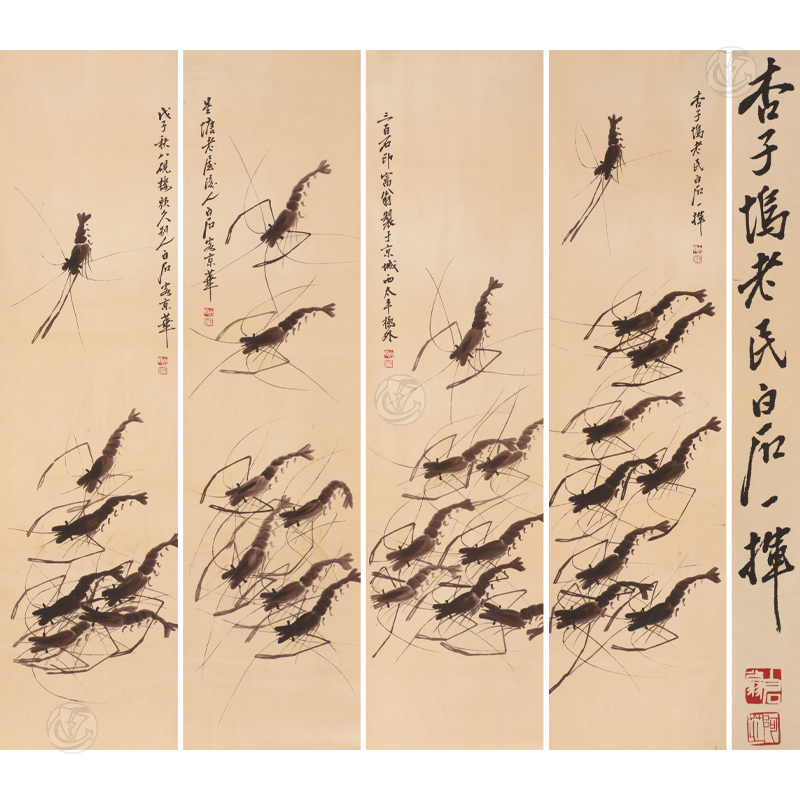 杏子塢老民白石一揮
白石翁
阿芝
杏子塢老民白石一揮
三百石印富翁製于京城西太平橋外
星塘老屋後人白石客京華
戊子秋八硯樓頭久別人白石客京華